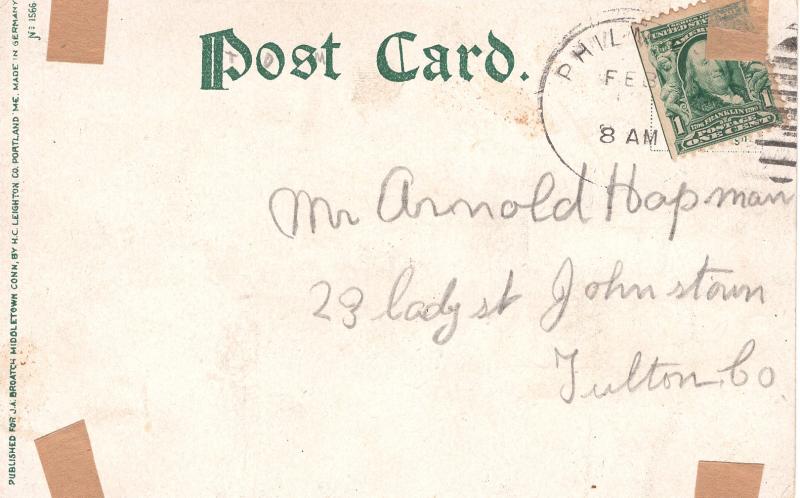 Post Card.
PHIL
FEB
8 AM
UNITED STA
AMERI
1790 FRANKLIN
POSTAGE
1 ONE CENT 1
Mr Arnold Hapman
23 lady st Johnstown
Fulton Co
PUBLISHED FOR J.A. BROATCH MIDDLETOWN CONN, BY H.C. LEIGHTON CO. PORTLAND ME. MADE IN GERMANY
No 1566